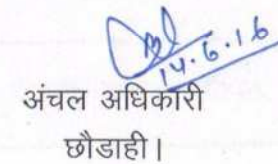 14.6.16
अंचल अधिकारी
छौडाही।